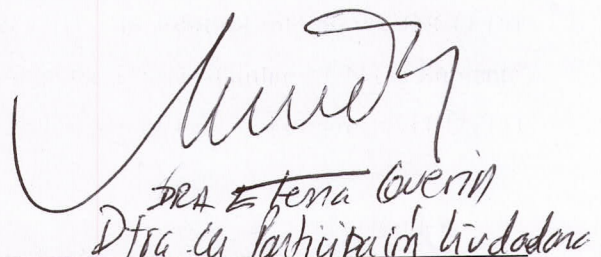 DRA Elena Guerin
Dtra de Participaión Ciudadana